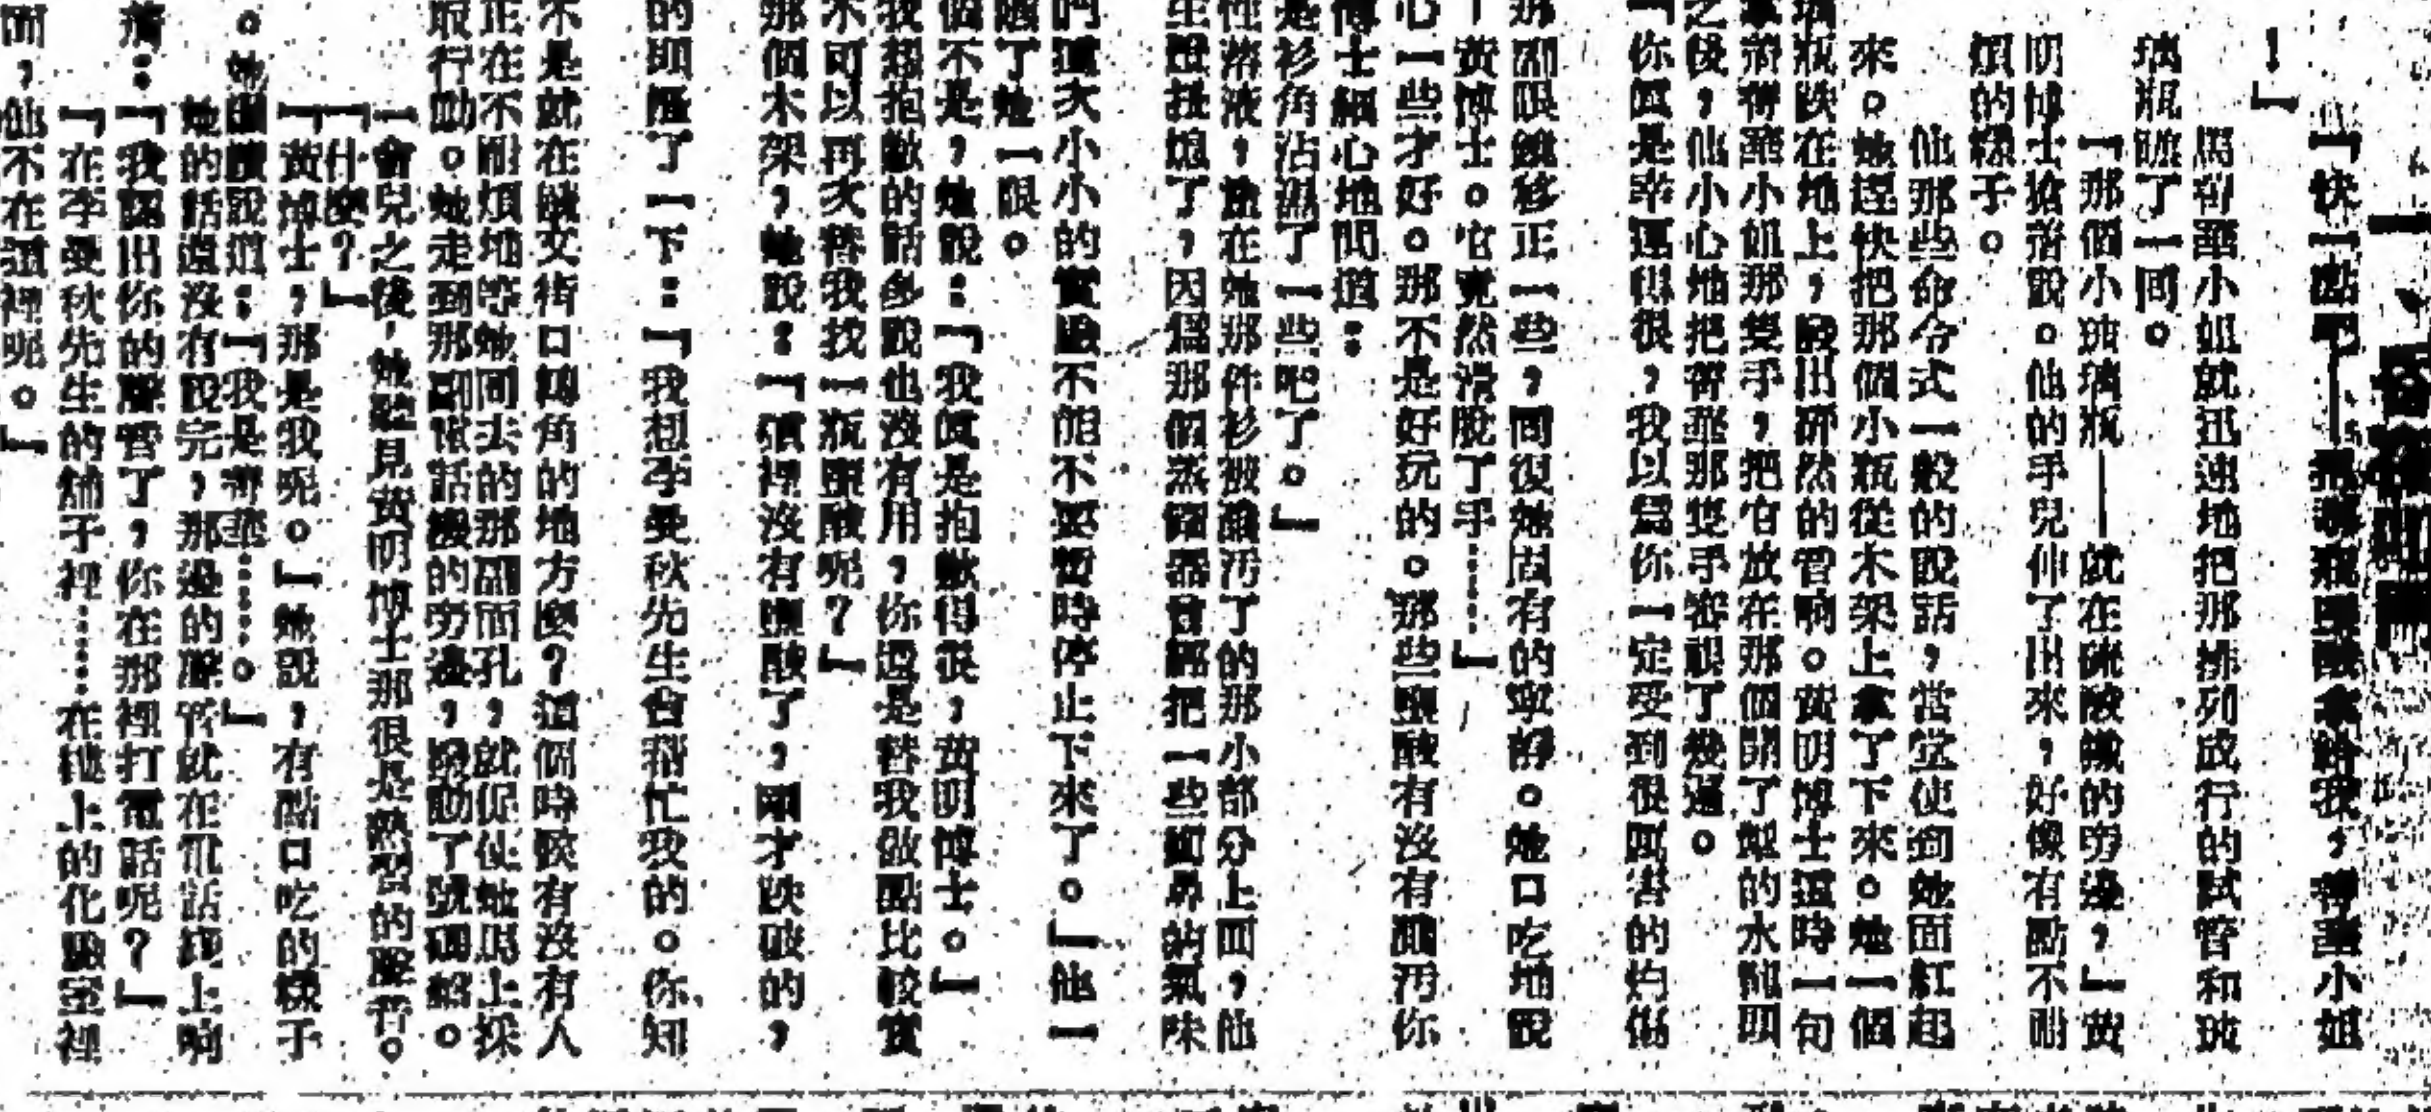 「快一點吧——把那瓶鹽酸拿給我,霄華小姐
!」
霄華小姐就迅速地把那排列成行的試管和玻
璃瓶瞧了一回。
「那個小玻璃瓶——就在硫酸的旁邊,」黃
明博士搶着說。他的手兒伸了出來,好像有點不耐
煩的樣子。
他那些命令式一般的說話,當堂使到她面紅起
來。她趕快把那個小瓶從木架上拿了下來。她一個
瓶跌在地上,發出砰然的響聲。黃明博士這時一句
着霄華小姐那隻手,把它放在那個開了掣的水龍頭
之後,他小心地把霄華那隻手審視了幾遍。
「你真是幸運得很,我以爲你一定受到很厲害的灼傷
那副眼鏡移正一些,回復她固有的寧靜。她口吃地說
黃博士。它竟然滑脫了手……」
心一些才好。那不是好玩的。那些鹽酸有沒有濺汚你
博士細心地問道:
是衫角沾濕了一些吧了。」
性溶液,塗在她那件衫被濺汚了的那小部分上面,他
熄了,因爲那個蒸餾器曾經把一些難聞的氣味
們這次小小的實驗不能不要暫時停止下來了。」他一
瞪了她一眼。
個不是,她說:「我真是抱歉得很,黃明博士。」
我想抱歉的話多說也沒有用,你還是替我做點比較實
不可以再次替我找一瓶鹽酸呢?」
那個木架,她說:「這裡沒有鹽酸了,剛才跌破的,
的頭壓了一下:「我想李曼秋先生會幫忙我的。你知
不是就在歐文街口轉角的地方麼?這個時候有沒有人
正在不耐煩地等她回去的那副面孔,就促使她馬上採
取行動。她走到那副電話機的旁邊,撥動了號碼盤。
一會兒之後,她聽見黃明博士那很是熟習的聲音。
「什麼?」
「黃博士,那是我呢。」她說,有點口吃的樣子
。她囁嚅說道:「我是霄華……。」
她的話還沒有說完,那邊的聲音就在電話綫上响
着:「我認出你的聲音了,你在那裡打電話呢?」
「在李曼秋先生的舖子裡……在樓上的化驗室裡
面,他不在這裡呢。」